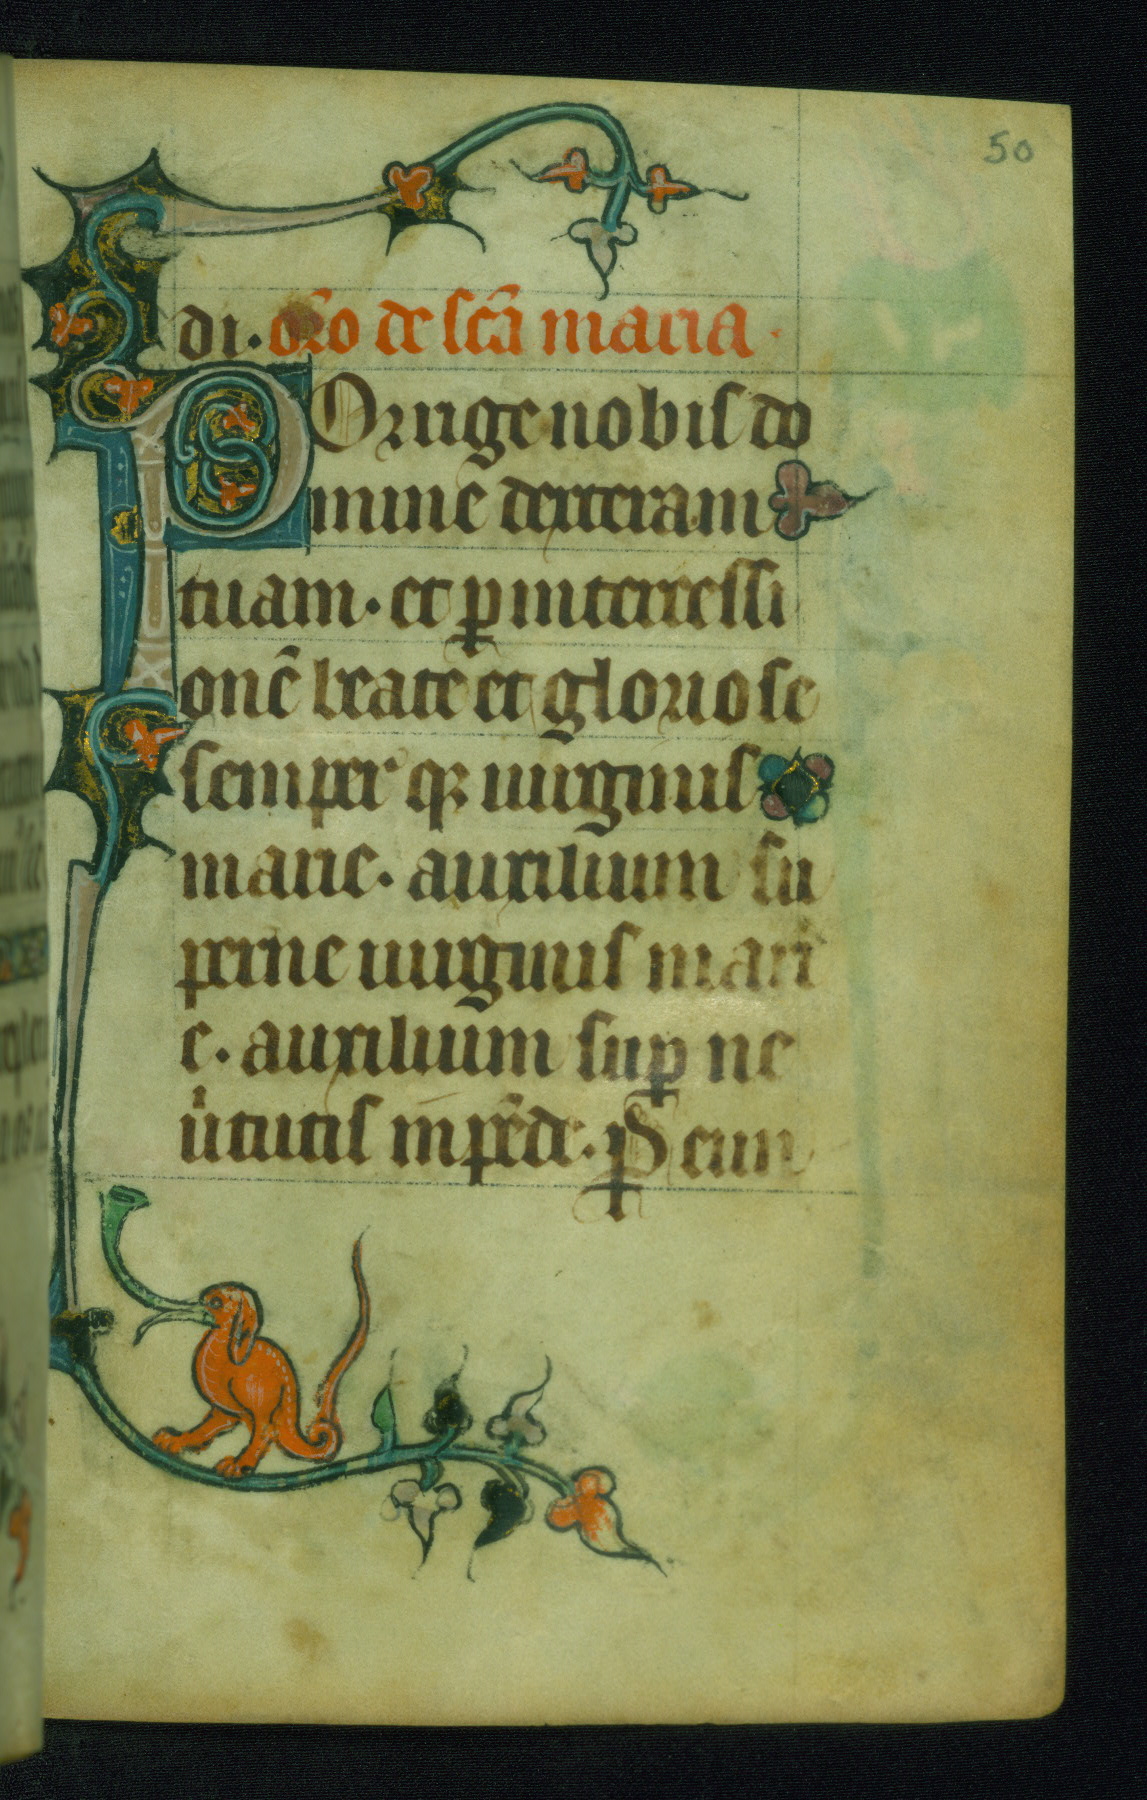 50
di. or̄o de sc̄a maria.
POrrige nobis do
mine dexteram
tuam. et ꝑ intercessi
onē beate et gloriose
semper qꝫ uirginis
marie. auxilium su
perne uirginis mari
e. auxilium suꝑ ne
uͥtutis inpēde. P eun